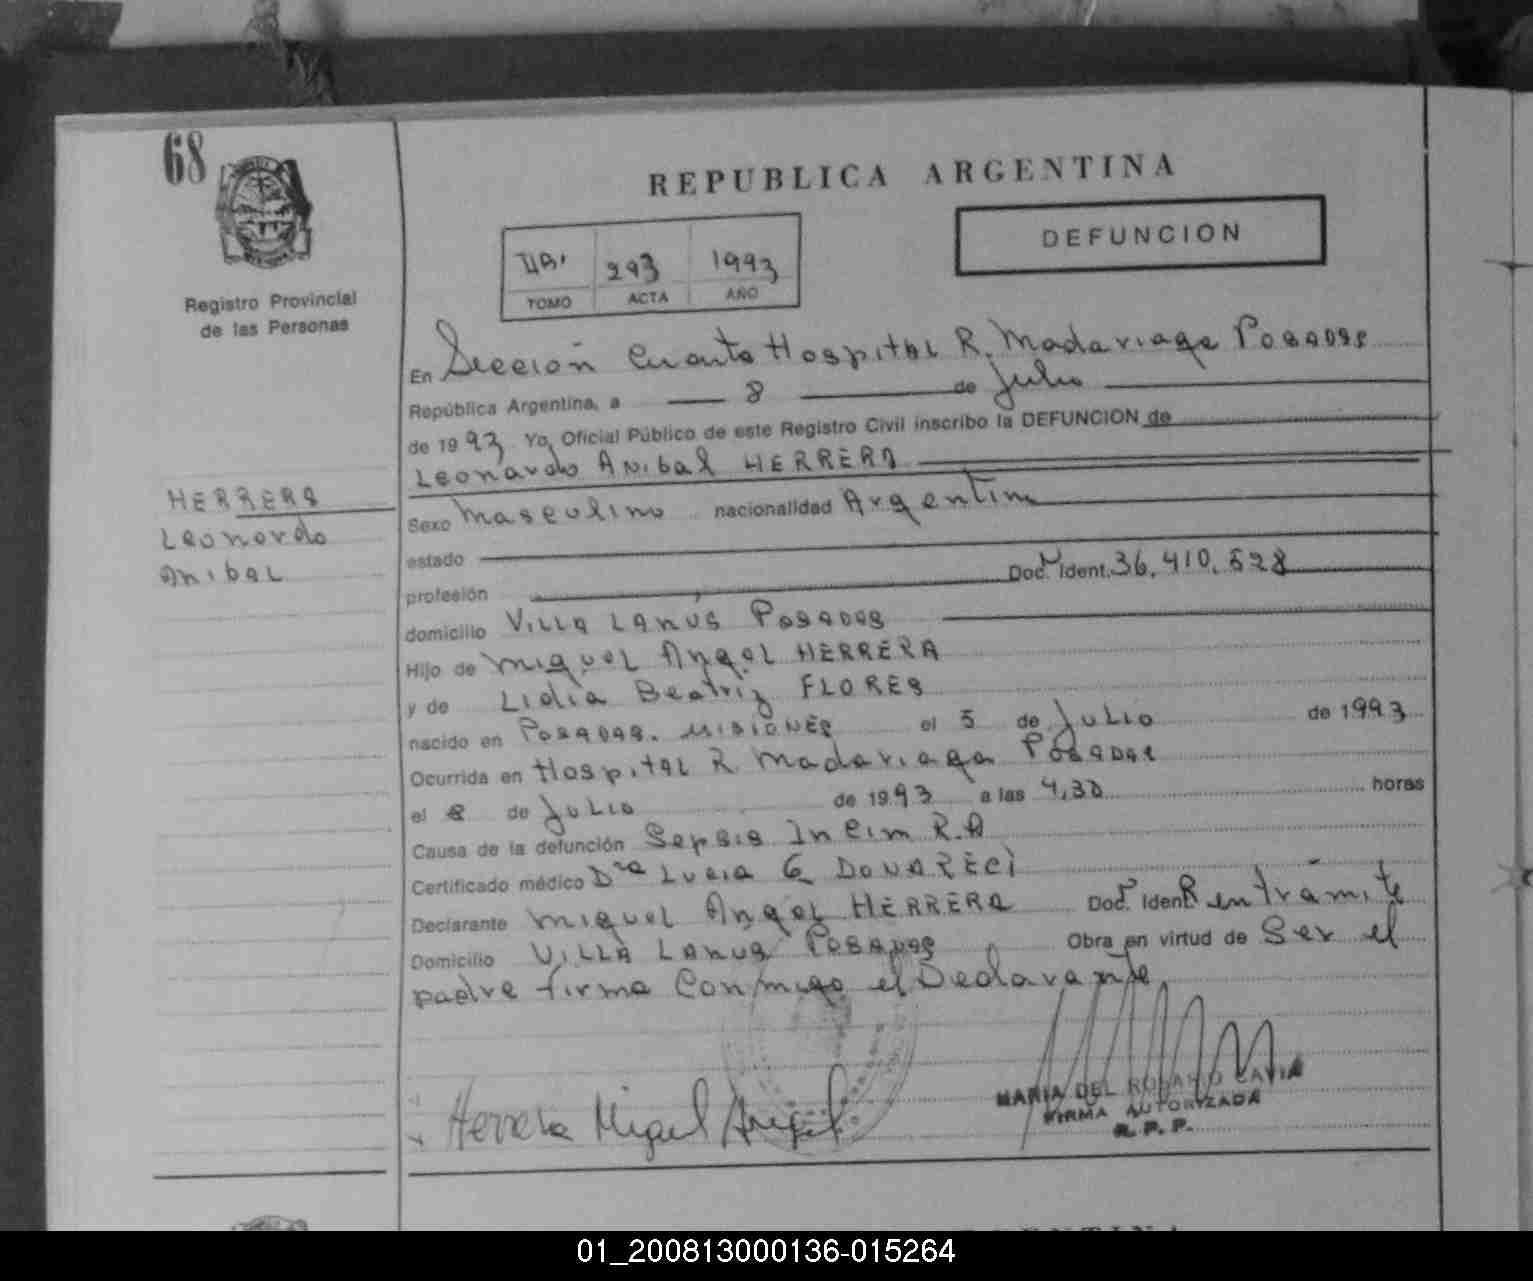 68
REPUBLICA ARGENTINA
DEFUNCION
293 1993
TOMO ACTA AÑO
Registro Provincial
de las Personas
En Sección Cuarta Hospital R. Madariaga Posadas
República Argentina, a 8 de Julio
de 1993 Yo, Oficial Público de este Registro Civil inscribo la DEFUNCION de
Leonardo Anibal HERRERA
HERRERA
Leonardo
Anibal
Sexo Masculino nacionalidad Argentina
estado
profesión Doc. Ident. 36,410,528
domicilio Villa Lanús Posadas
Hijo de Miguel Angel HERRERA
y de Lidia Beatriz FLORES
nacido en Posadas. Misiones el 5 de Julio de 1993
Ocurrida en Hospital R Madariaga Posadas
el 8 de Julio de 1993 a las 4,30 horas
Causa de la defunción Sepsis R.A
Certificado médico Dra Lucia G
Declarante Miguel Angel HERRERA Doc. Ident. en trámite
Domicilio Villa Lanus Posadas Obra en virtud de Ser el
padre firma Conmigo el Declarante
Herrera Miguel Angel
MARIA DEL ROSARIO
FIRMA AUTORIZADA
R. P. P.
01_200813000136-015264